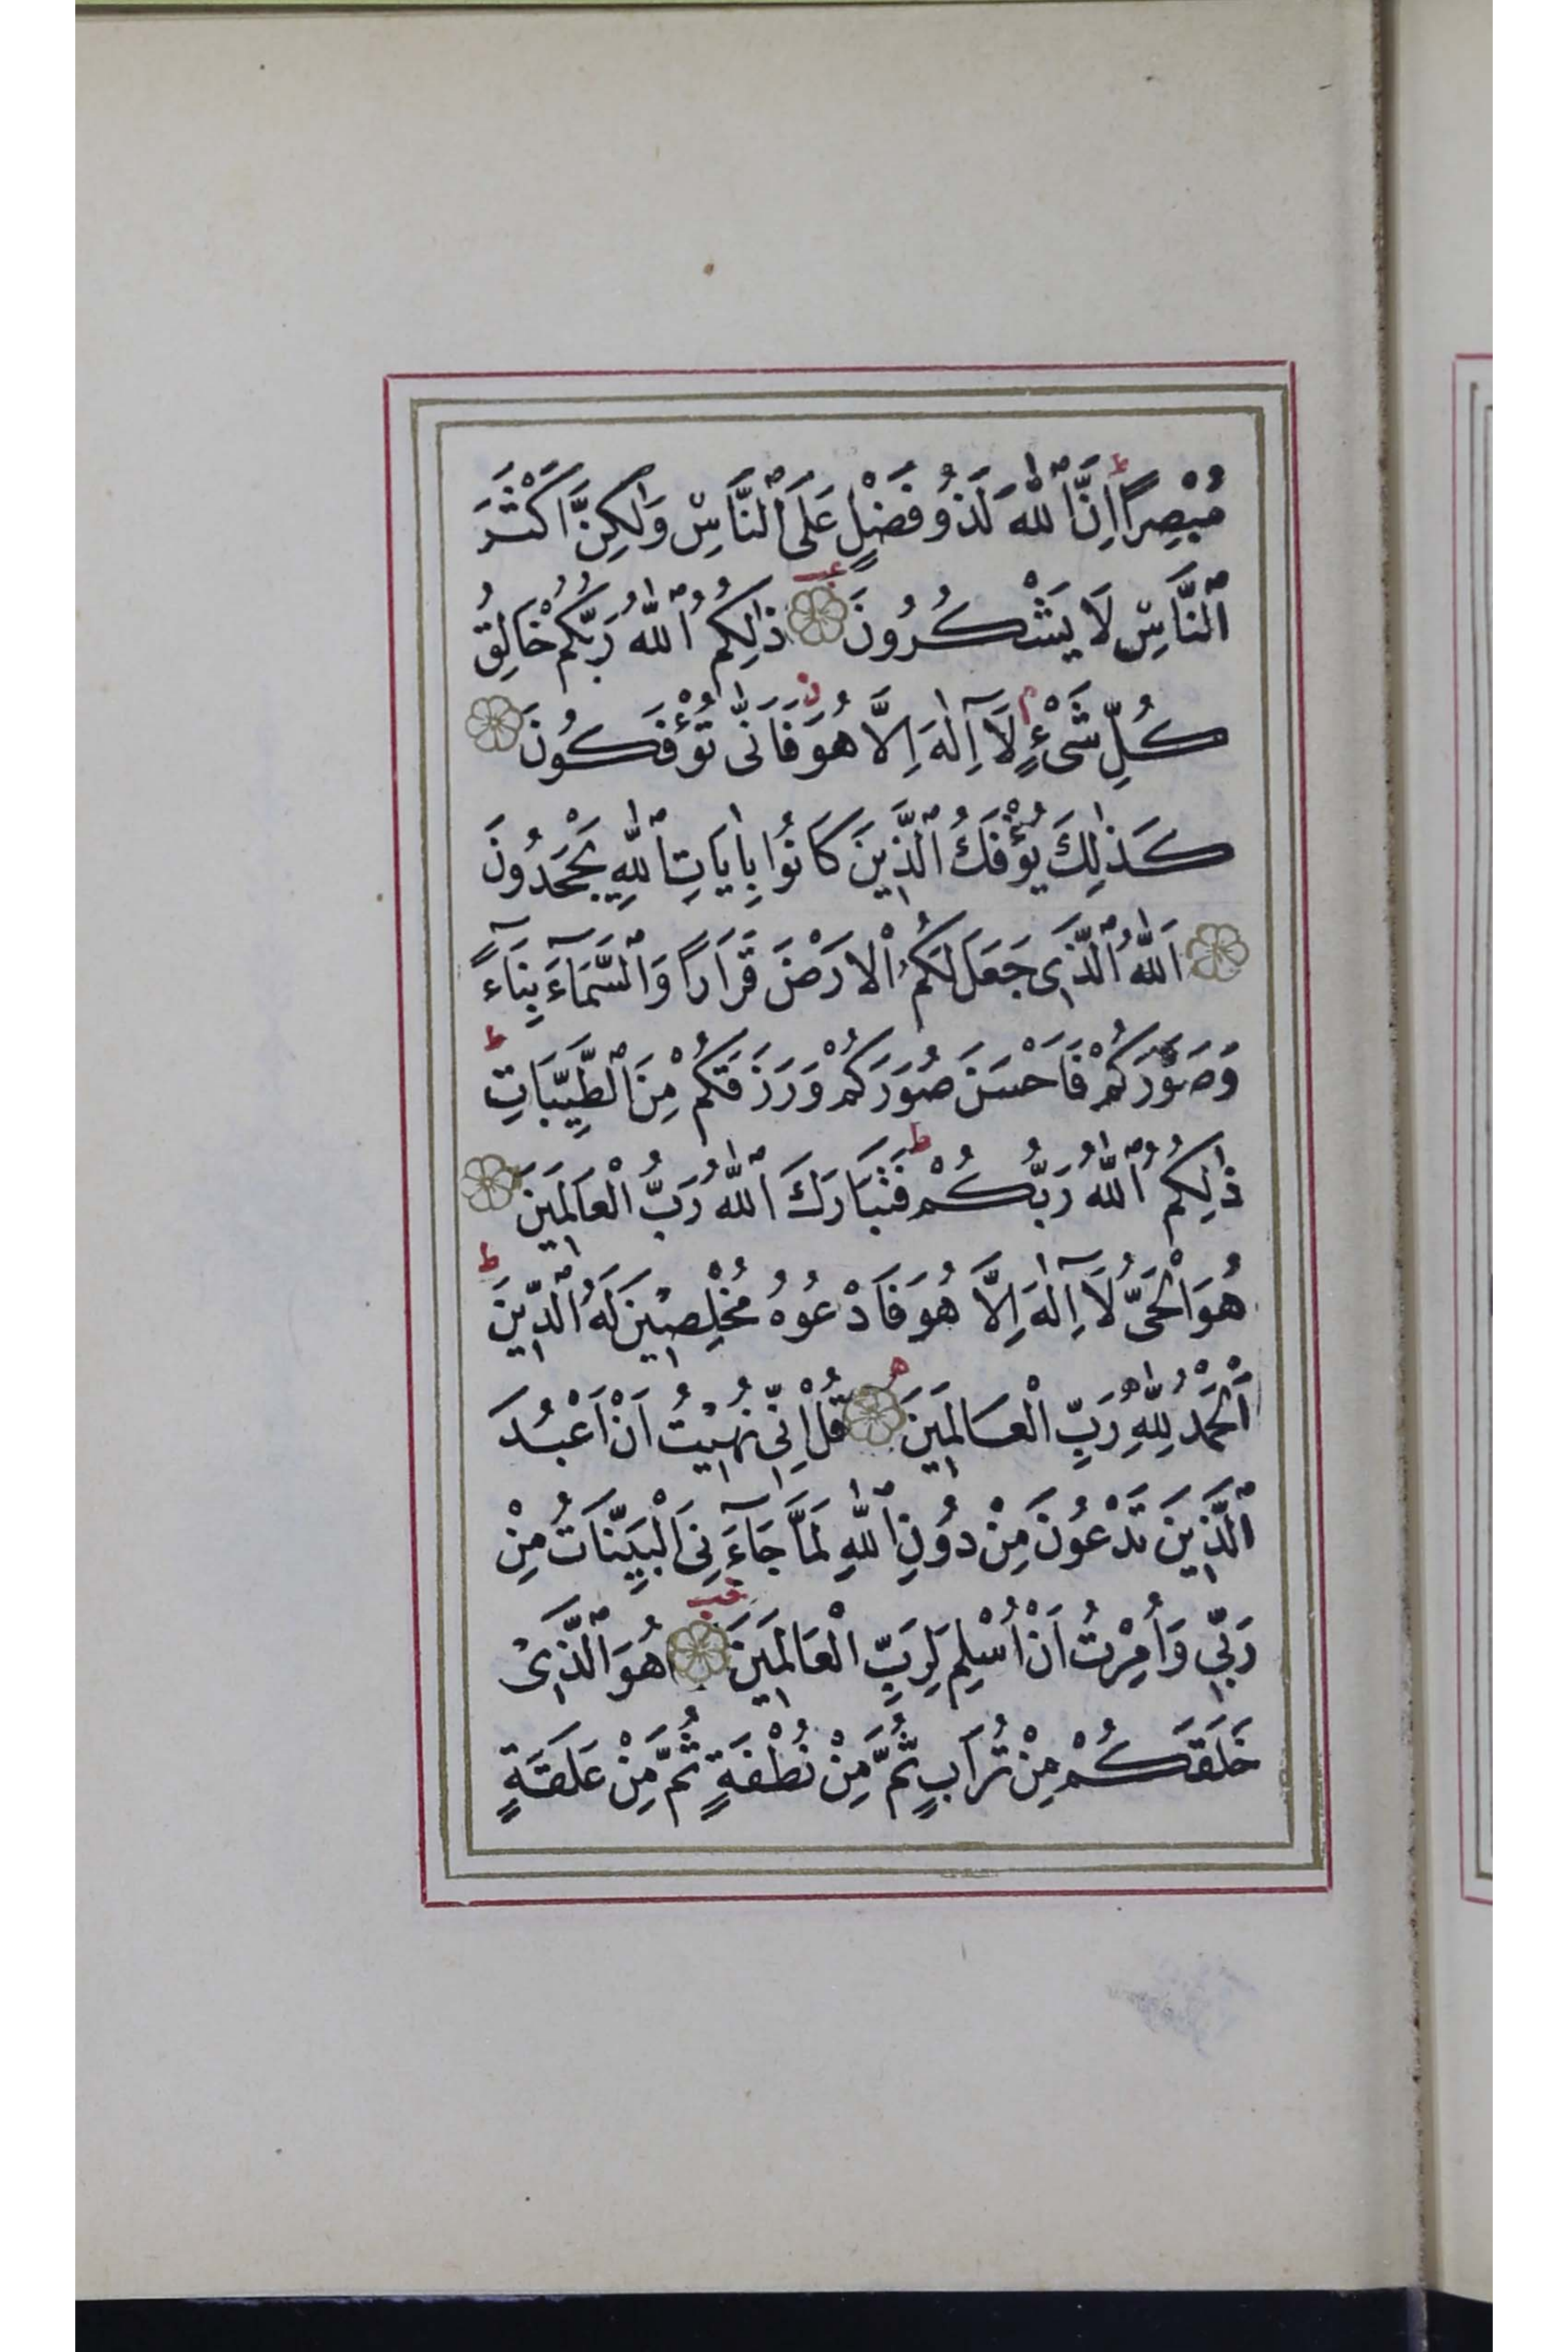 مُبْصِرًا ط اِنَّ ٱللّٰهَ لَذُو فَضْلٍ عَلَى ٱلنَّاسِ وَلٰكِنَّ اَكْثَرَ
ٱلنَّاسِ لَا يَشْكُرُونَ عب ذٰلِكُمُ ٱللّٰهُ رَبُّكُمْ خَالِقُ
كُلِّ شَىْءٍ م لَآ اِلٰهَ اِلَّا هُوَ ز فَاَنّٰى تُؤْفَكُونَ
كَذٰلِكَ يُؤْفَكُ ٱلَّذِينَ كَانُوا بِاٰيَاتِ ٱللّٰهِ يَجْحَدُونَ
اَللّٰهُ ٱلَّذِى جَعَلَ لَكُمُ ٱلْارَضَ قَرَارًا وَٱلسَّمَآءَ بِنَآءً
وَصَوَّرَكُمْ فَاَحْسَنَ صُوَرَكُمْ وَرَزَقَكُمْ مِنَ ٱلطَّيِّبَاتِ ط
ذٰلِكُمُ ٱللّٰهُ رَبُّكُمْ ط فَتَبَارَكَ ٱللّٰهُ رَبُّ الْعَالَمِينَ
هُوَ الْحَىُّ لَآ اِلٰهَ اِلَّا هُوَ فَادْعُوهُ مُخْلِصِينَ لَهُ ٱلدِّينَ ط
اَلْحَمْدُ لِلّٰهِ رَبِّ الْعَالَمِينَ ه قُلْ اِنِّى نُهِيتُ اَنْ اَعْبُدَ
ٱلَّذِينَ تَدْعُونَ مِنْ دُونِ ٱللّٰهِ لَمَّا جَآءَنِىَ الْبَيِّنَاتُ مِنْ
رَبِّى وَاُمِرْتُ اَنْ اُسْلِمَ لِرَبِّ الْعَالَمِينَ خب هُوَ ٱلَّذِى
خَلَقَكُمْ مِنْ تُرَابٍ ثُمَّ مِنْ نُطْفَةٍ ثُمَّ مِنْ عَلَقَةٍ